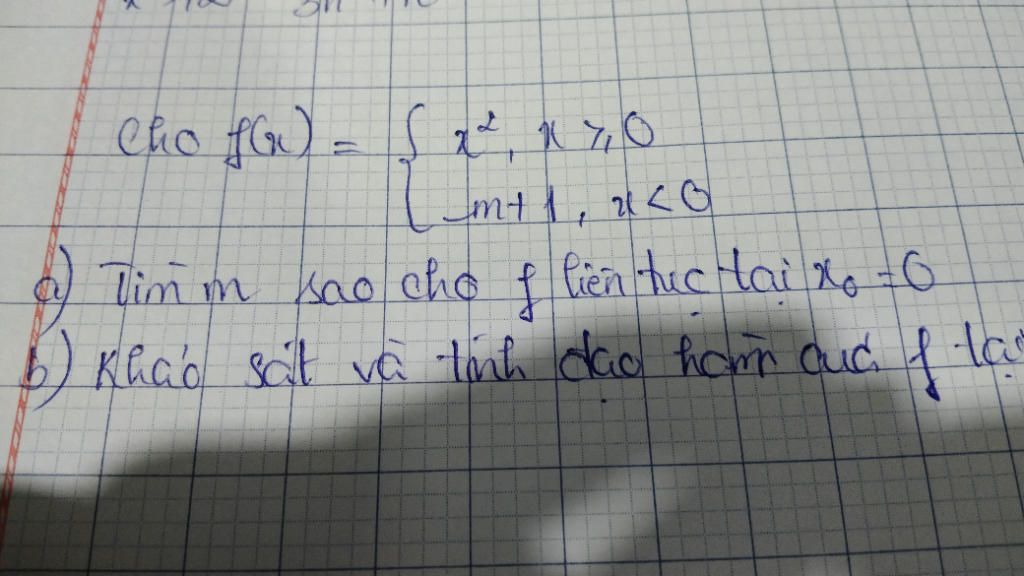 Cho f(x) = { x², x ≥ 0
m+1, x < 0
a) Tìm m sao cho f liên tục tại x₀ = 0
b) Khảo sát và tính đạo hàm của f tại